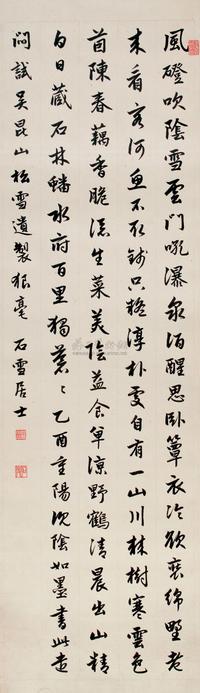 風磴吹陰雪雲門吼瀑泉酒醒思卧簟衣冷欲裝綿野老
來看客河魚不取錢只疑淳朴處自有一山川棘樹寒雲色
茵陳春藕香脆添生菜美陰益食單涼野鶴清晨出山精
白日藏石林蟠水府百里獨蒼〻乙酉重陽沉陰如墨書此遣
悶試吳昆山松雪遺製狼毫 石雪居士